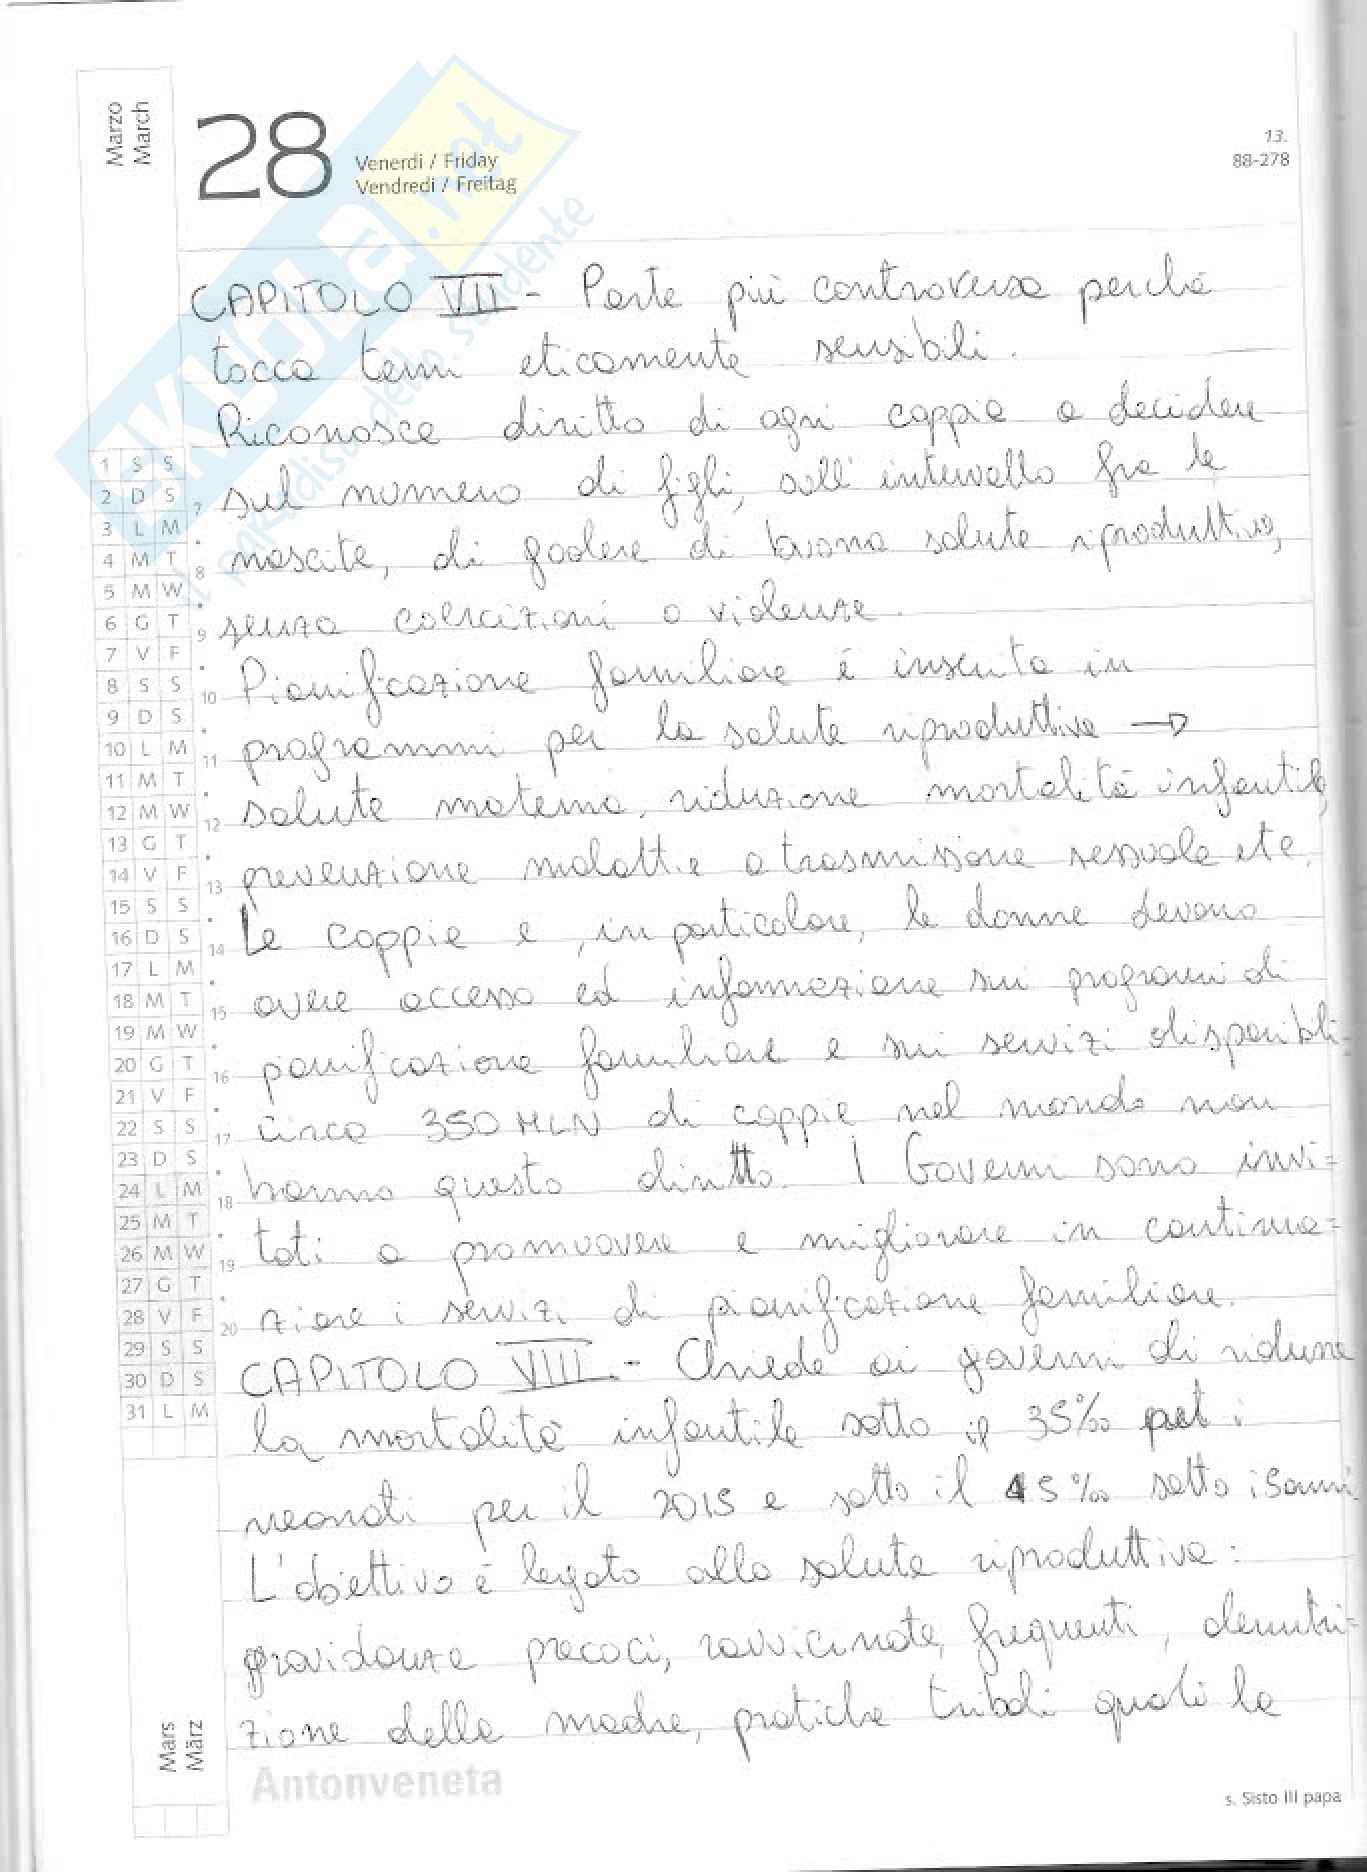 Marzo
March
28
Venerdì / Friday
Vendredi / Freitag
13.
88-278
SKUOLA.net
il paradiso dello studente
CAPITOLO VII - Parte più controversa perché
tocca temi eticamente sensibili.
Riconosce diritto di ogni coppia a decidere
sul numero di figli, sull'intervallo fra le
nascite, di godere di buona salute riproduttiva,
senza coercizioni o violenze.
Pianificazione familiare è inserita in
programmi per la salute riproduttiva →
salute materna, riduzione mortalità infantile,
prevenzione malattie a trasmissione sessuale etc.
Le coppie e, in particolare, le donne devono
avere accesso ed informazione sui programmi di
pianificazione familiare e sui servizi disponibili.
Circa 350 MLN di coppie nel mondo non
hanno questo diritto. I Governi sono invi=
tati a promuovere e migliorare in continua=
zione i servizi di pianificazione familiare.
CAPITOLO VIII - Chiede ai governi di ridurre
la mortalità infantile sotto il 35‰ per i
neonati per il 2015 e sotto il 45‰ sotto i 5 anni
L'obiettivo è legato alla salute riproduttiva:
gravidanze precoci, ravvicinate, frequenti, denutri=
zione della madre, pratiche tribali quali la
1 S S
2 D S
3 L M
4 M T
5 M W
6 G T
7 V F
8 S S
9 D S
10 L M
11 M T
12 M W
13 G T
14 V F
15 S S
16 D S
17 L M
18 M T
19 M W
20 G T
21 V F
22 S S
23 D S
24 L M
25 M T
26 M W
27 G T
28 V F
29 S S
30 D S
31 L M
7
8
9
10
11
12
13
14
15
16
17
18
19
20
Mars
März
Antonveneta
s. Sisto III papa